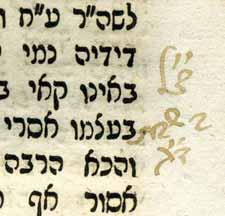 לשה״ר ע״ח ו
דידיה כמי
באינו קאי ב
בעלמו אסרי
והכא הרבה
אסור אף ה